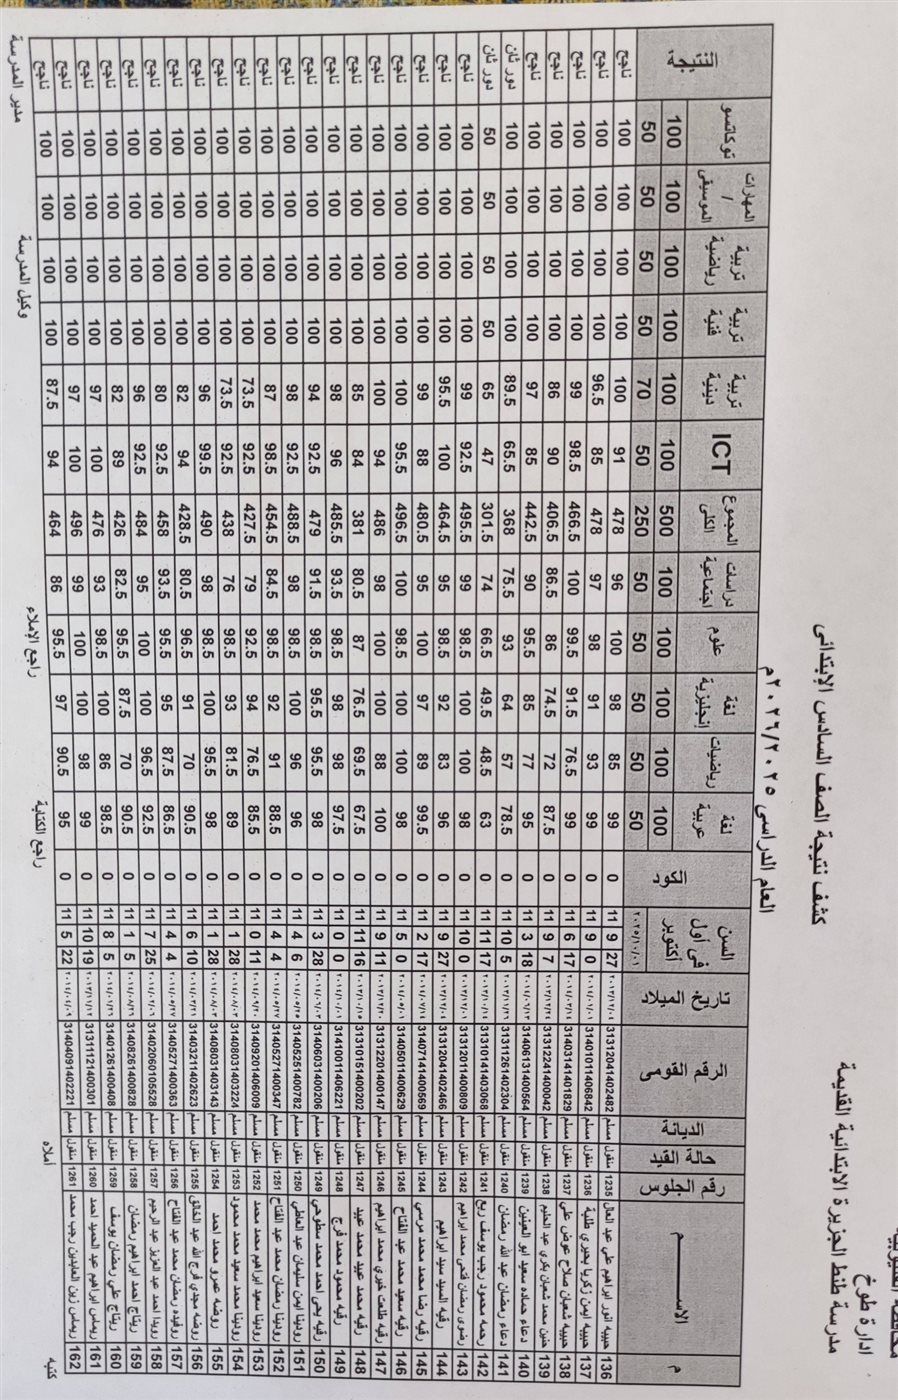 محافظة القليوبية
ادارة طوخ
مدرسة طنط الجزيرة الابتدائية القديمة
كشف نتيجة الصف السادس الإبتدائى
العام الدراسى ٢٠٢٦/٢٠٢٥م
م الاســـــم رقم الجلوس حالة القيد الديانة الرقم القومى تاريخ الميلاد السن فى أول أكتوبر الكود لغة عربية رياضيات لغة إنجليزية علوم دراسات اجتماعية المجموع الكلى ICT تربية دينية تربية فنية تربية رياضية المهارات / الموسيقى توكاتسو النتيجة
100 100 100 100 100 500 100 100 100 100 100 100
٢٠٢٥/١٠/٠١ 50 50 50 50 50 250 50 70 50 50 50 50
136 حبيبه انور ابراهيم على عبد العال 1235 منقول مسلم 27 9 11 0 99 85 98 100 96 478 91 100 100 100 100 100 ناجح
137 حبيبه ايمن زكريا بحيرى طلبة 1236 منقول مسلم 0 9 11 0 99 93 91 98 97 478 85 96.5 100 100 100 100 ناجح
138 حبيبه شعبان صلاح عوض على 1237 منقول مسلم 17 6 11 0 99 76.5 91.5 99.5 100 466.5 98.5 99 100 100 100 100 ناجح
139 حنين محمد شعبان بكرى عبد الحليم 1238 منقول مسلم 7 9 11 0 87.5 72 74.5 86 86.5 406.5 90 86 100 100 100 100 ناجح
140 دعاء حماده سعيد ابو العينين 1239 منقول مسلم 18 3 11 0 95 77 85 95.5 90 442.5 85 97 100 100 100 100 ناجح
141 دعاء رمضان عبد الله رمضان 1240 منقول مسلم 5 10 11 0 78.5 57 64 93 75.5 368 65.5 89.5 100 100 100 100 دور ثان
142 رحمه محمود رجب يوسف ربيع 1241 منقول مسلم 17 11 11 0 63 48.5 49.5 66.5 74 301.5 47 65 50 50 50 50 دور ثان
143 رضوى رمضان فتحى محمد ابراهيم 1242 منقول مسلم 0 10 11 0 98 100 100 98.5 99 495.5 92.5 99 100 100 100 100 ناجح
144 رقيه السيد سيد ابراهيم 1243 منقول مسلم 27 9 11 0 96 83 92 98.5 95 464.5 100 95.5 100 100 100 100 ناجح
145 رقيه رضا محمد محمد مرسى 1244 منقول مسلم 17 2 11 0 99.5 89 97 100 95 480.5 88 99 100 100 100 100 ناجح
146 رقيه سعيد محمد عبد الفتاح 1245 منقول مسلم 0 5 11 0 98 100 100 98.5 100 496.5 95.5 100 100 100 100 100 ناجح
147 رقيه طلعت خيرى محمد ابراهيم 1246 منقول مسلم 11 9 11 0 100 88 100 100 98 486 94 100 100 100 100 100 ناجح
148 رقيه محمد عبيد محمد عبيد 1247 منقول مسلم 16 11 11 0 67.5 69.5 76.5 87 80.5 381 84 85 100 100 100 100 ناجح
149 رقيه محمود محمد فرج 1248 منقول مسلم 0 0 11 0 97.5 98 98 98.5 93.5 485.5 96 98 100 100 100 100 ناجح
150 رقيه يحى احمد محمد سطوحى 1249 منقول مسلم 28 3 11 0 98 95.5 95.5 98.5 91.5 479 92.5 94 100 100 100 100 ناجح
151 رودينا ايمن سليمان عبد العاطى 1250 منقول مسلم 6 4 11 0 96 96 100 98.5 98 488.5 92.5 98 100 100 100 100 ناجح
152 رودينا رمضان محمد عبد الفتاح 1251 منقول مسلم 4 4 11 0 88.5 91 92 98.5 84.5 454.5 98.5 87 100 100 100 100 ناجح
153 رودينا سعيد ابراهيم محمد محمد 1252 منقول مسلم 11 0 11 0 85.5 76.5 94 92.5 79 427.5 92.5 73.5 100 100 100 100 ناجح
154 رودينا محمد سعيد محمد محمود 1253 منقول مسلم 28 1 11 0 89 81.5 93 98.5 76 438 92.5 73.5 100 100 100 100 ناجح
155 روضه عمرو محمد احمد 1254 منقول مسلم 28 1 11 0 98 95.5 100 98.5 98 490 99.5 96 100 100 100 100 ناجح
156 روضه مجدى فرج الله عبد الخالق 1255 منقول مسلم 10 6 11 0 90.5 70 91 96.5 80.5 428.5 94 82 100 100 100 100 ناجح
157 روفيده رمضان محمد عبد الفتاح 1256 منقول مسلم 4 4 11 0 86.5 87.5 95 95.5 93.5 458 92.5 80 100 100 100 100 ناجح
158 رويدا احمد عبد العزيز عبد الرحيم 1257 منقول مسلم 25 7 11 0 92.5 96.5 100 100 95 484 92.5 96 100 100 100 100 ناجح
159 ريتاج احمد ابراهيم رمضان 1258 منقول مسلم 5 1 11 0 90.5 70 87.5 95.5 82.5 426 89 82 100 100 100 100 ناجح
160 ريتاج على رمضان يوسف 1259 منقول مسلم 5 8 11 0 98.5 86 100 98.5 93 476 100 97 100 100 100 100 ناجح
161 ريماس ابراهيم عبد الحميد احمد 1260 منقول مسلم 19 10 11 0 99 98 100 100 99 496 100 97 100 100 100 100 ناجح
162 ريماس زين العابدين رجب محمد 1261 منقول مسلم 22 5 11 0 95 90.5 97 95.5 86 464 94 87.5 100 100 100 100 ناجح
كتبه أملاه راجع الكتابة راجع الإملاء وكيل المدرسة مدير المدرسة